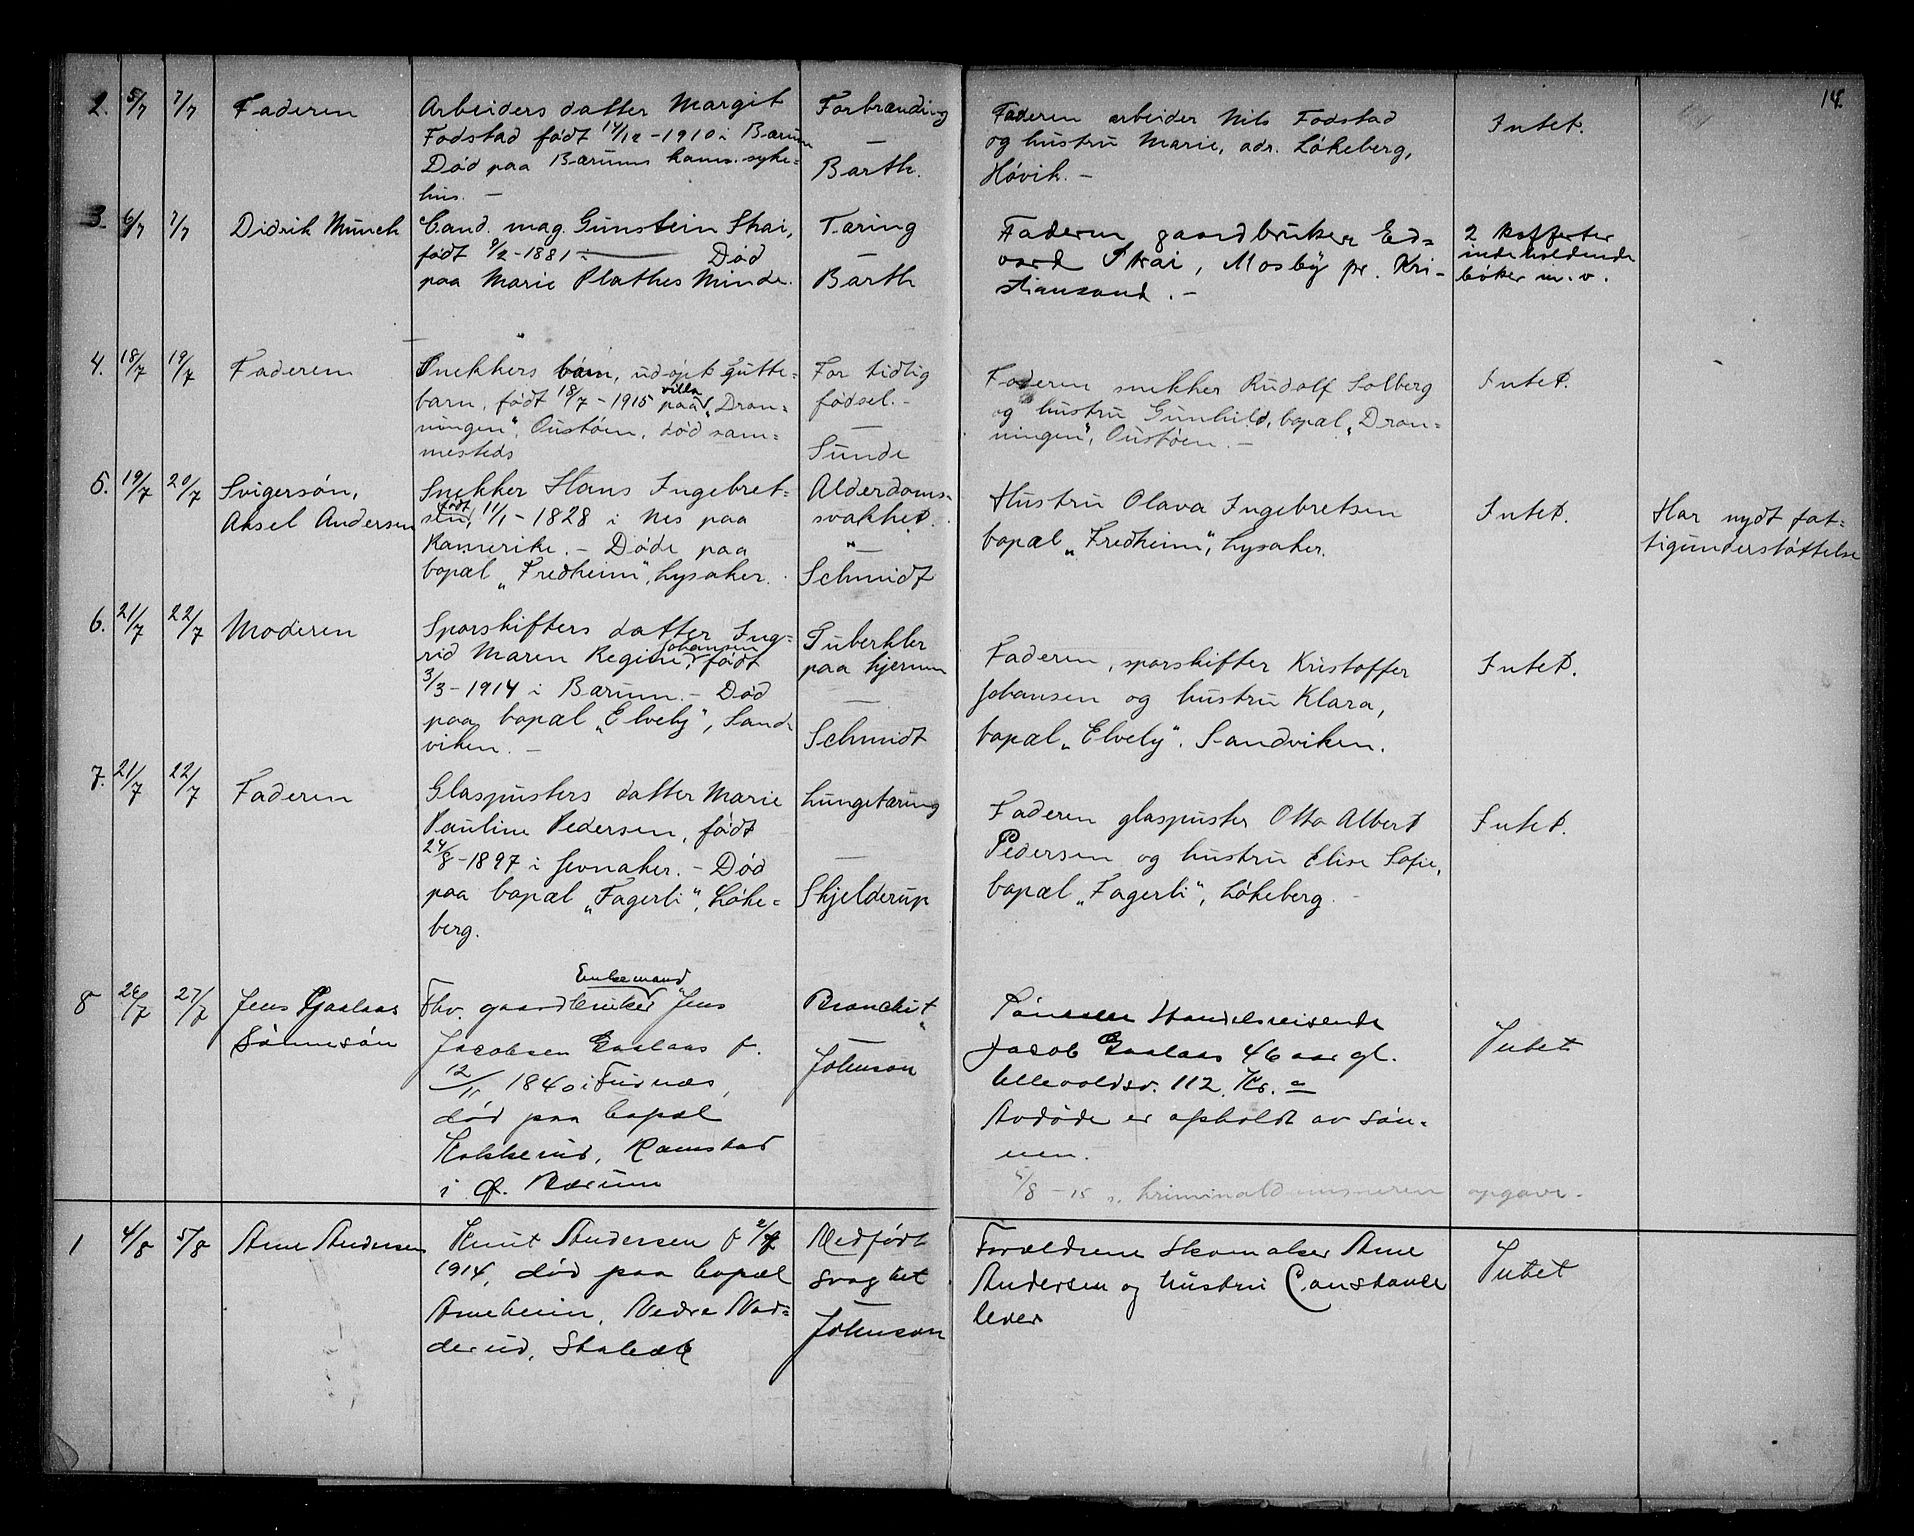 14
2. 5/7 7/7 Faderen
Arbeiders datter Margit
Fodstad født 14/12-1910 i Bærum
Død paa Bærums kom. syke=
hus. —
Forbrænding
—
Barth.
Faderen arbeider Nils Fodstad
og hustru Marie, adr. Løkeberg,
Høvik. —
Intet.
3. 6/7 7/7 Didrik Münch
Cand. mag. Gunstein Skai,
født 9/2-1881 Død
paa Marie Plathes Minde.
Tæring
—
Barth
Faderen gaardbruker Ed=
vard Skai, Mosby pr. Kri-
stiansand. —
2 kofferter
indeholdende
bøker m. v.
4. 18/7 19/7 Faderen
Snekkers barn, udøpt gutte=
barn, født 18/7-1915 paa villa „Dron=
ningen", Oustøen, død sam=
mesteds
For tidlig
fødsel. —
—
Sunde
Faderen snekker Rudolf Solberg
og hustru Gunhild, bopæl „Dron=
ningen", Oustøen. —
Intet.
5. 19/7 20/7 Svigersøn,
Aksel Andersen
Snekker Hans Ingebret=
sen, født 11/1-1828 i Nes paa
Romerike. — Døde paa
bopæl „Fredheim", Lysaker.
Alderdoms-
svakhet.
—
Schmidt
Hustru Olava Ingebretsen
bopæl „Fredheim", Lysaker.
Intet.
Har nydt fat=
tigunderstøttelse
6. 21/7 22/7 Moderen
Sporskifters datter Ing=
rid Maren Regine Johansen født
3/3-1914 i Bærum. — Død
paa bopæl „Elvely", Sand-
viken. —
Tuberkler
paa hjernen
—
Schmidt
Faderen, sporskifter Kristoffer
Johansen og hustru Klara,
bopæl „Elvely". Sandviken.
Intet.
7. 21/7 22/7 Faderen
Glaspusters datter Marie
Pauline Pedersen, født
24/8-1897 i Jevnaker. — Død
paa bopæl „Fagerli", Løke=
berg.
Lungetæring
—
Skjelderup
Faderen glaspuster Otto Albert
Pedersen og hustru Elise Sofie,
bopæl „Fagerli", Løkeberg. —
Intet.
8 26/7 27/7 Jens Gaalaas
Sønnesøn
Enkemand
Fhv. gaardbruker Jens
Jacobsen Gaalaas f.
12/11 1840 i Furnæs,
død paa bopæl
Ramstad
i Ø. Bærum
Bronchit
—
Johnson
Sønnen Handelsreisende
Jacob Gaalaas 46 aar gl.
Ullevoldsv. 112. Kr.a
Avdøde er opholdt av søn=
nen.
5/8-15
opgave.
1 4/8 5/8 Arne Andersen
Knut Andersen f 2/7
1914, død paa bopæl
Arneheim, Nedre Nad=
derud, Stabæk
Medfødt
svaghet
—
Johnson
Forældrene Skomaker Arne
Andersen og hustru Constance
lever
Intet